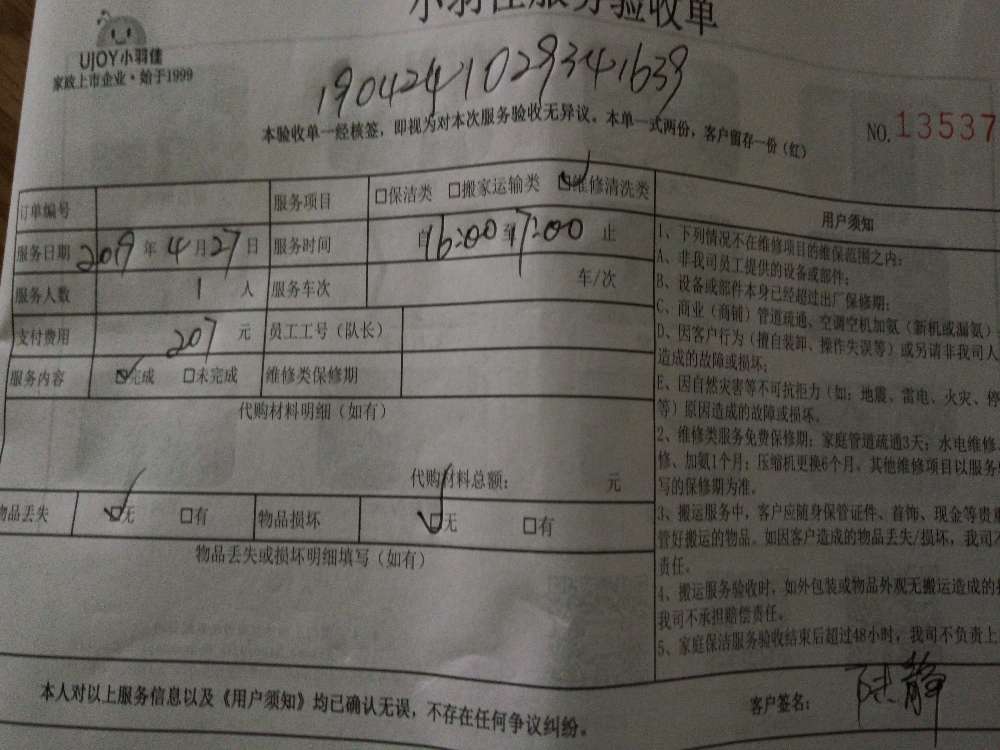 小羽佳服务验收单
UJOY小羽佳
家政上市企业·始于1999
1904241029341639
本验收单一经核签，即视为对本次服务验收无异议。本单一式两份，客户留存一份（红）
NO. 13537
订单编号 服务项目 □保洁类 □搬家运输类 ☑维修清洗类
服务日期 2019 年 4 月 27 日 服务时间 自16:00至17:00 止
服务人数 1 人 服务车次 车/次
支付费用 207 元 员工工号（队长）
服务内容 ☑完成 □未完成 维修类保修期
代购材料明细（如有）
代购材料总额： 元
物品丢失 ☑无 □有 物品损坏 ☑无 □有
物品丢失或损坏明细填写（如有）
用户须知
1、下列情况不在维修项目的维保范围之内：
A、非我司员工提供的设备或部件；
B、设备或部件本身已经超过出厂保修期；
C、商业（商铺）管道疏通、空调空机加氨（新机或漏氨）
D、因客户行为（擅自装卸、操作失误等）或另请非我司人
造成的故障或损坏；
E、因自然灾害等不可抗拒力（如：地震、雷电、火灾、停
等）原因造成的故障或损坏。
2、维修类服务免费保修期：家庭管道疏通3天；水电维修、
修、加氨1个月；压缩机更换6个月。其他维修项目以服务
写的保修期为准。
3、搬运服务中，客户应随身保管证件、首饰、现金等贵
管好搬运的物品。如因客户造成的物品丢失/损坏，我司不
责任。
4、搬运服务验收时，如外包装或物品外观无搬运造成的
我司不承担赔偿责任。
5、家庭保洁服务验收结束后超过48小时，我司不负责上
本人对以上服务信息以及《用户须知》均已确认无误，不存在任何争议纠纷。
客户签名： 陆静